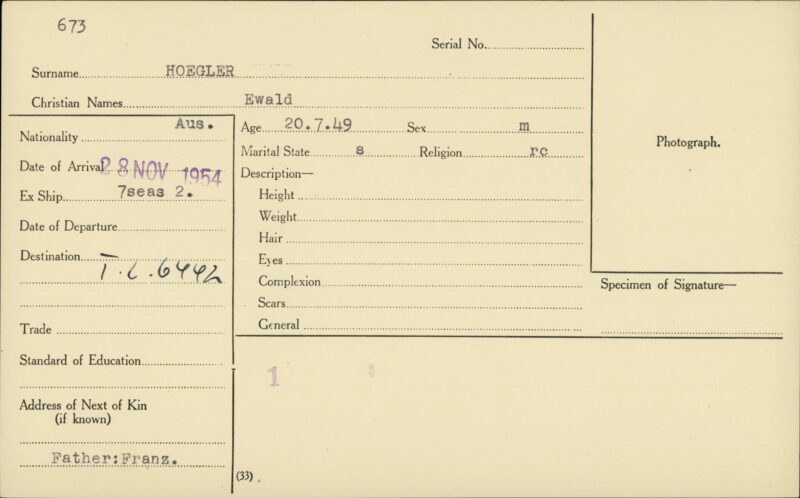 673
Serial No.
Surname HOEGLER
Christian Names Ewald
Nationality Aus.
Date of Arrival 28 NOV 1954
Ex Ship 7seas 2.
Date of Departure
Destination
T.C.6442
Trade
Standard of Education
Address of Next of Kin
(if known)
Father:Franz.
Age 20.7.49 Sex m
Marital State s Religion rc
Description—
Height
Weight
Hair
Eyes
Complexion
Scars
General
1
(33)
Photograph.
Specimen of Signature—